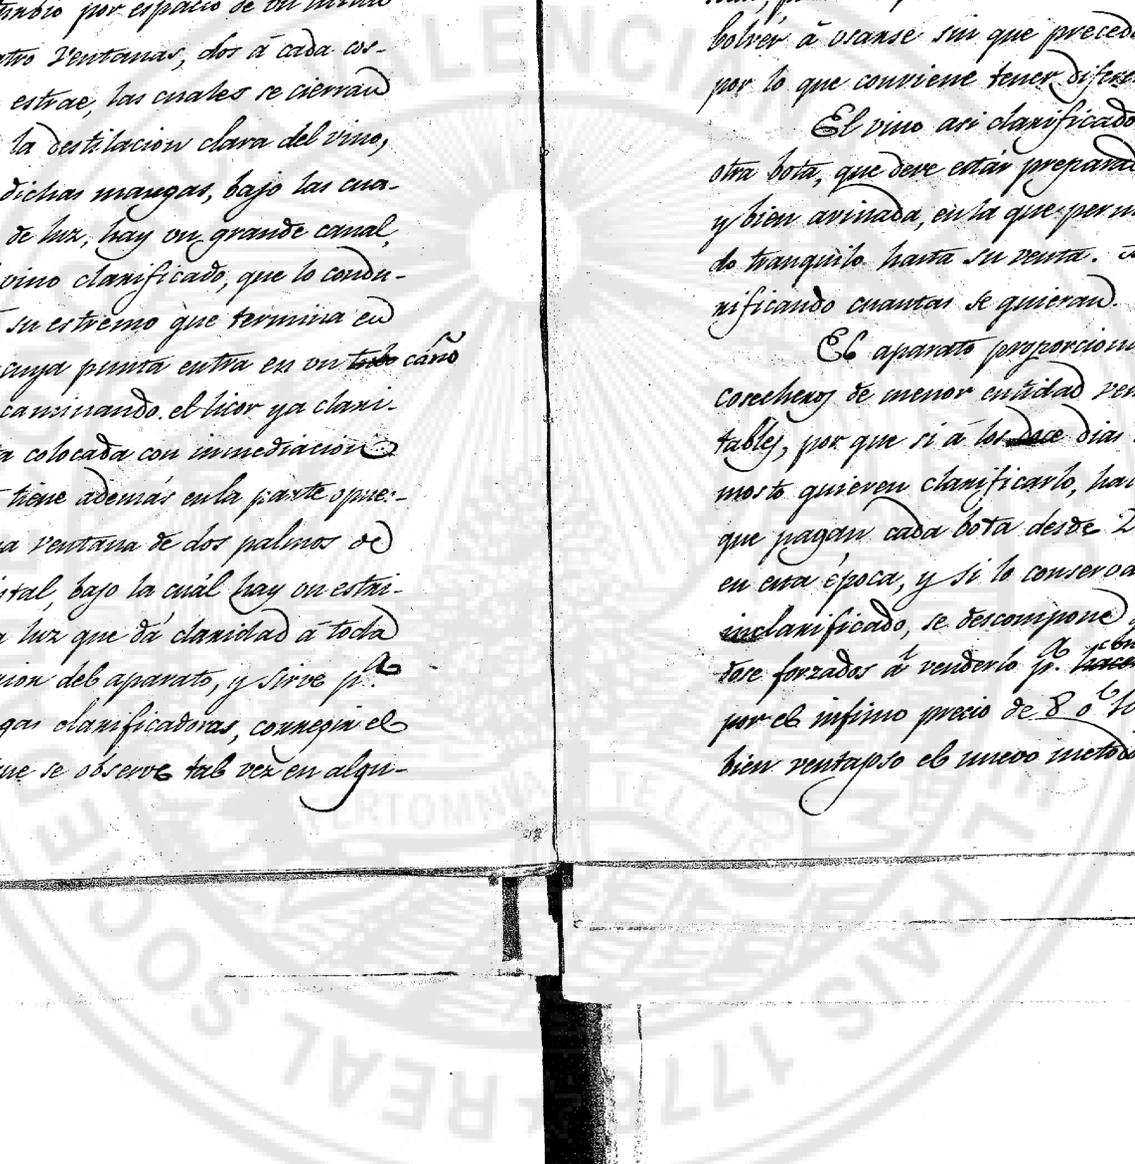 turbio por espacio de un
atro ventanas, dos á cada cos-
estrae, las cuales se cierran
la destilacion clara del vino,
dichas mangas, bajo las cua-
de luz, hay un grande canal,
vino clarificado, que lo condu-
su estremo que termina en
cuya punta entra en un tubo caño
caminando el licor ya clari-
ta colocada con inmediacion
tiene además en la parte opues-
na ventana de dos palmos de
istal, bajo la cuál hay un estai-
a luz que dá claridad á toda
cion del aparato, y sirve p.ª
gas clarificadoras, corregir el
que se observe tal vez en algu-
bolver á usarse sin que preced
por lo que conviene tener difere
El vino asi clarificado
otra bota, que deve estár preparad
y bien avinada, en la que perm
do tranquilo hasta su venta.
rificando cuantas se quieran.
El aparato proporcion
cosecheros de menor entidad ven
tables, por que si á los doce dias
mosto quieren clarificarlo, ha
que pagan cada bota desde 2
en esta época, y si lo conserva
inclarificado, se descompone
dose forzados á venderlo p.ª hacer
por el infimo precio de 8 ó 10
bien ventajoso el nuevo metodo
VALENCIA
REAL SOCIEDAD
PAIS 1776